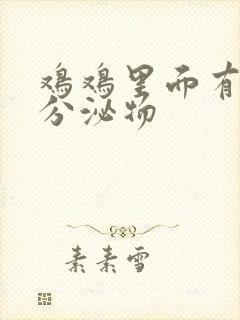 鸡鸡里而有
分泌物
素素雪